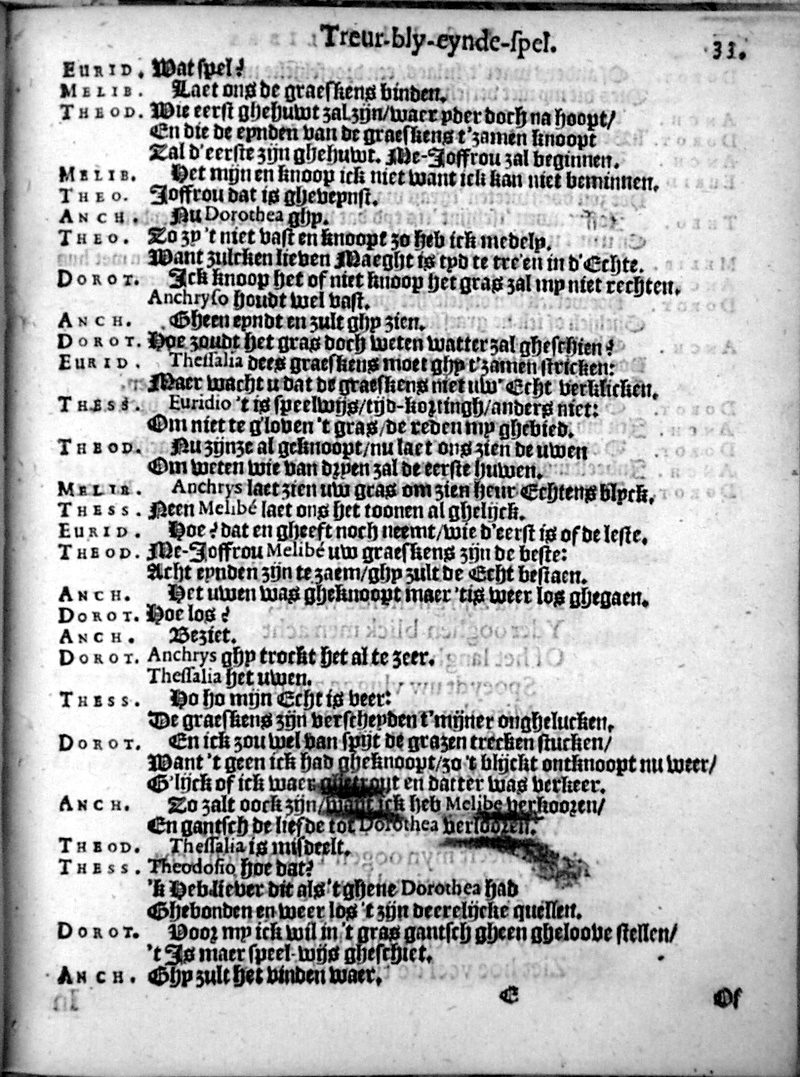 Treur-bly-eynde-spel. 33.
EURID. Wat spel?
MELIB. Laet ons de graeskens binden.
THEOD. Wie eerst ghehuwt zal zijn/waer yder doch na hoopt/
En die de eynden van de graeskens t'zamen knoopt
Zal d'eerste zijn ghehuwt. Me-Joffrou zal beginnen.
MELIB. Het mijn en knoop ick niet want ick kan niet beminnen.
THEO. Joffrou dat is gheveynst.
ANCH. Nu Dorothea ghy.
THEO. Zo zy 't niet vast en knoopt zo heb ick medely.
Want zulcken lieven Maeght is tyd te tre'en in d'Echte.
DOROT. Ick knoop het of niet knoop het gras zal my niet rechten.
Anchryso houdt wel vast.
ANCH. Gheen eyndt en zult ghy zien.
DOROT. Hoe zoudt het gras doch weten watter zal gheschien?
EURID. Thessalia dees graeskens moet ghy t'zamen stricken:
Maer wacht u dat de graeskens niet uw' Echt verklicken.
THESS. Euridio 't is speelwijs/tijd-kortingh/anders niet:
Om niet te g'loven 't gras/de reden my ghebied.
THEOD. Nu zijnze al geknoopt/nu laet ons zien de uwen
Om weten wie van dryen zal de eerste huwen.
MELIB. Anchrys laet zien uw gras om zien heur Echtens blyck.
THESS. Neen Melibé laet ons het toonen al ghelijck.
EURID. Hoe? dat en gheeft noch neemt/wie d'eerst is of de leste.
THEOD. Me-Joffrou Melibé uw graeskens zijn de beste:
Acht eynden zijn te zaem/ghy zult de Echt bestaen.
ANCH. Het uwen was gheknoopt maer 'tis weer los ghegaen.
DOROT. Hoe los?
ANCH. Beziet.
DOROT. Anchrys ghy trockt het al te zeer.
Thessalia het uwen.
THESS. Ho ho mijn Echt is veer:
De graeskens zijn verscheyden t'mijner onghelucken.
DOROT. En ick zou wel van spijt de grazen trecken stucken/
Want 't geen ick had gheknoopt/zo 't blijckt ontknoopt nu weer/
G'lijck of ick waer ghetrout en datter was verkeer.
ANCH. Zo zalt oock zijn/want ick heb Melibe verkoozen/
En gantsch de liefde tot Dorothea verloozen.
THEOD. Thessalia is misdeelt.
THESS. Theodosio hoe dat?
'k Heb liever dit als 't ghene Dorothea had
Ghebonden en weer los 't zijn deerelijcke quellen.
DOROT. Voor my ick wil in 't gras gantsch gheen gheloove stellen/
't Is maer speel-wijs gheschiet.
ANCH. Ghy zult het vinden waer.
C Of